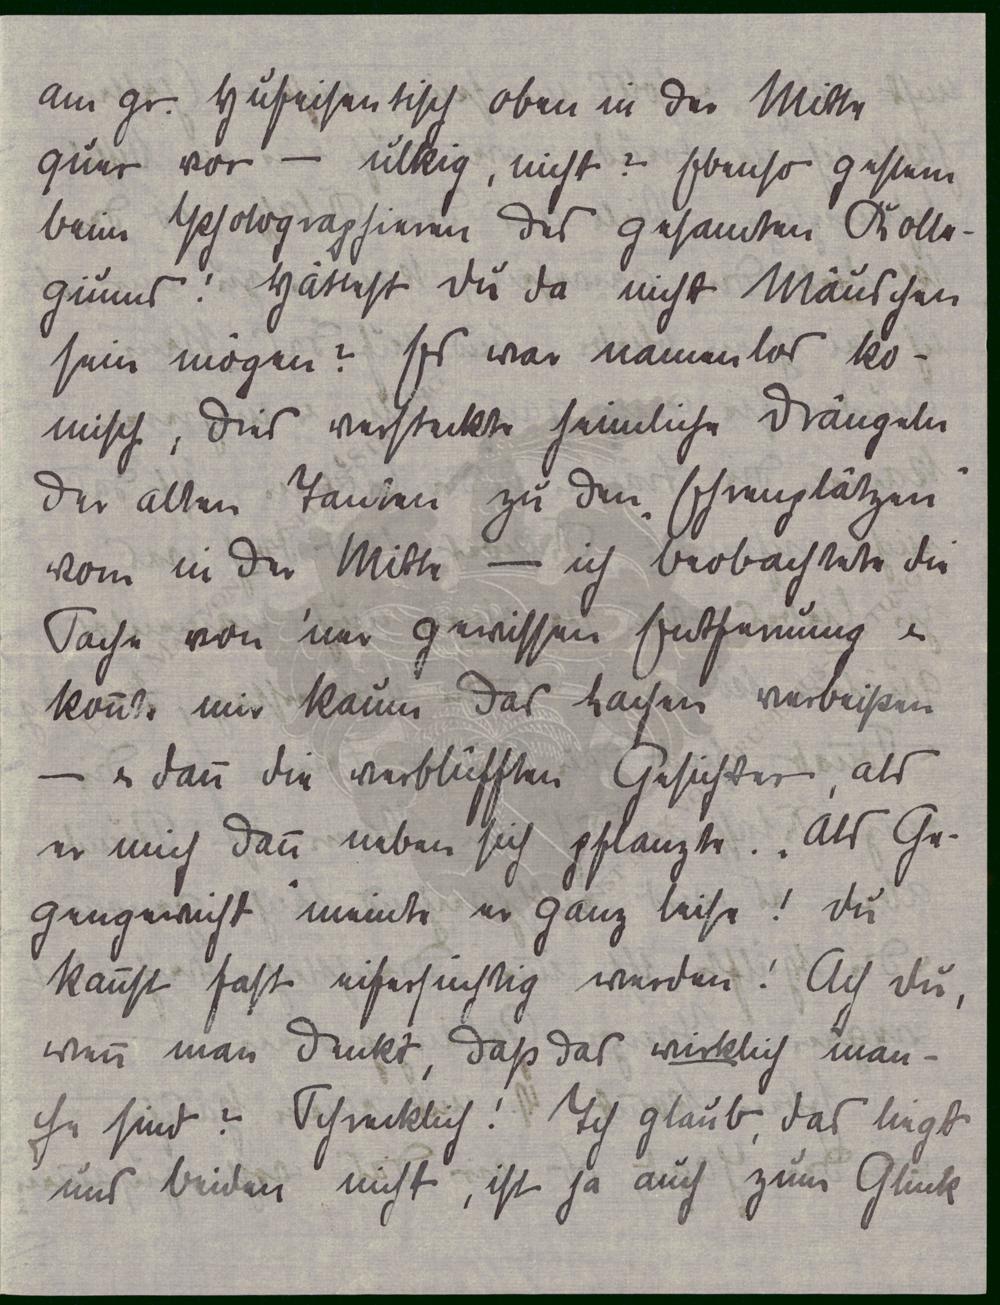 am gr. Hufeisentisch oben in der Mitte
quer vor — ulkig, nicht? Ebenso gestern
beim Photographieren des gesamten Kolle-
giums! Hättest du da nicht Mäuschen
sein mögen? Es war namenlos ko-
misch, dies versteckte heimliche Drängeln
der alten Tanten zu den „Ehrenplätzen“
vorn in der Mitte — ich beobachtete die
Sache von 'ner gewissen Entfernung u
kon̄te mir kaum das Lachen verbeißen
— u dan̄ die verblüfften Gesichter, als
er mich dan̄ neben sich pflanzte. „Als Ge-
gengewicht“ meinte er ganz leise! Du
kan̄st fast eifersüchtig werden! Ach du,
wen̄ man denkt, daß das wirklich man-
che sind? Schrecklich! Ich glaub, das liegt
uns beiden nicht, ist ja auch zum Glück